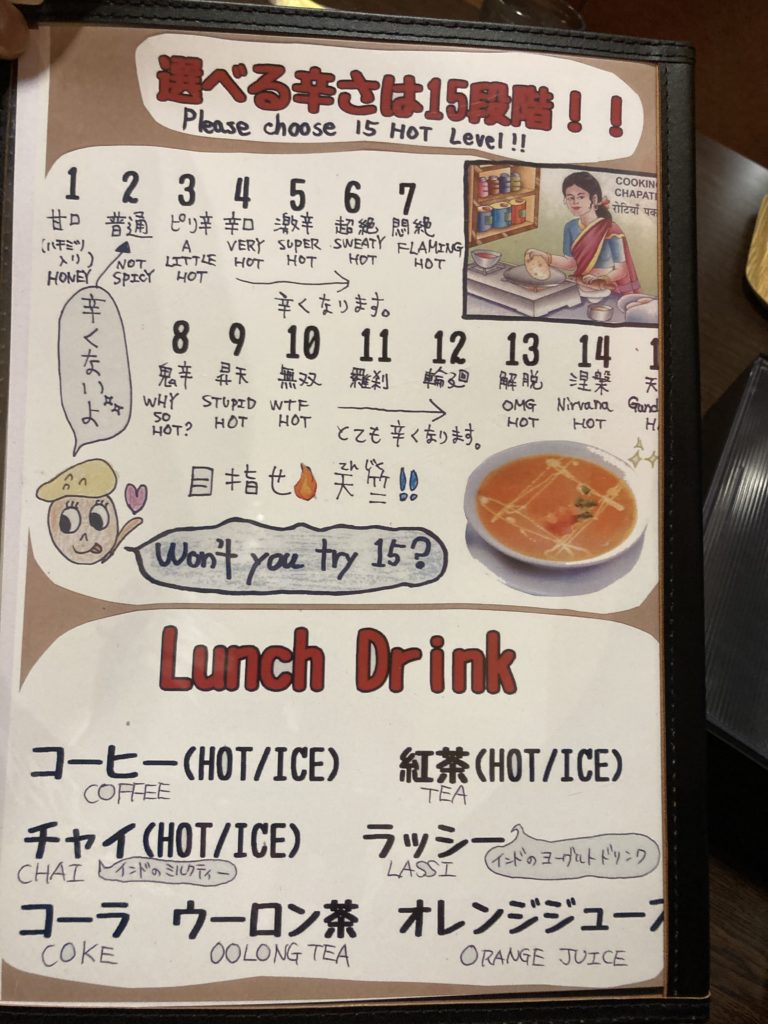 選べる辛さは15段階！！
Please choose 15 HOT Level!!
1 2 3 4 5 6 7
甘口 普通 ピリ辛 辛口 激辛 超絶 悶絶
(ハチミツ入り) HONEY
NOT SPICY
A LITTLE HOT
VERY HOT
SUPER HOT
SWEATY HOT
FLAMING HOT
辛くなります。
COOKING
CHAPATI
रोटियाँ पक
辛くないよ
8 9 10 11 12 13 14 1
鬼辛 昇天 無双 羅刹 輪廻 解脱 涅槃 天
WHY SO HOT?
STUPID HOT
WTF HOT
OMG HOT
Nirvana HOT
Gand
H
とても辛くなります。
目指せ 天竺!!
てんじく
Won't you try 15?
Lunch Drink
コーヒー(HOT/ICE) 紅茶(HOT/ICE)
COFFEE TEA
チャイ(HOT/ICE) ラッシー
CHAI インドのミルクティー LASSI インドのヨーグルトドリンク
コーラ ウーロン茶 オレンジジュース
COKE OOLONG TEA ORANGE JUICE